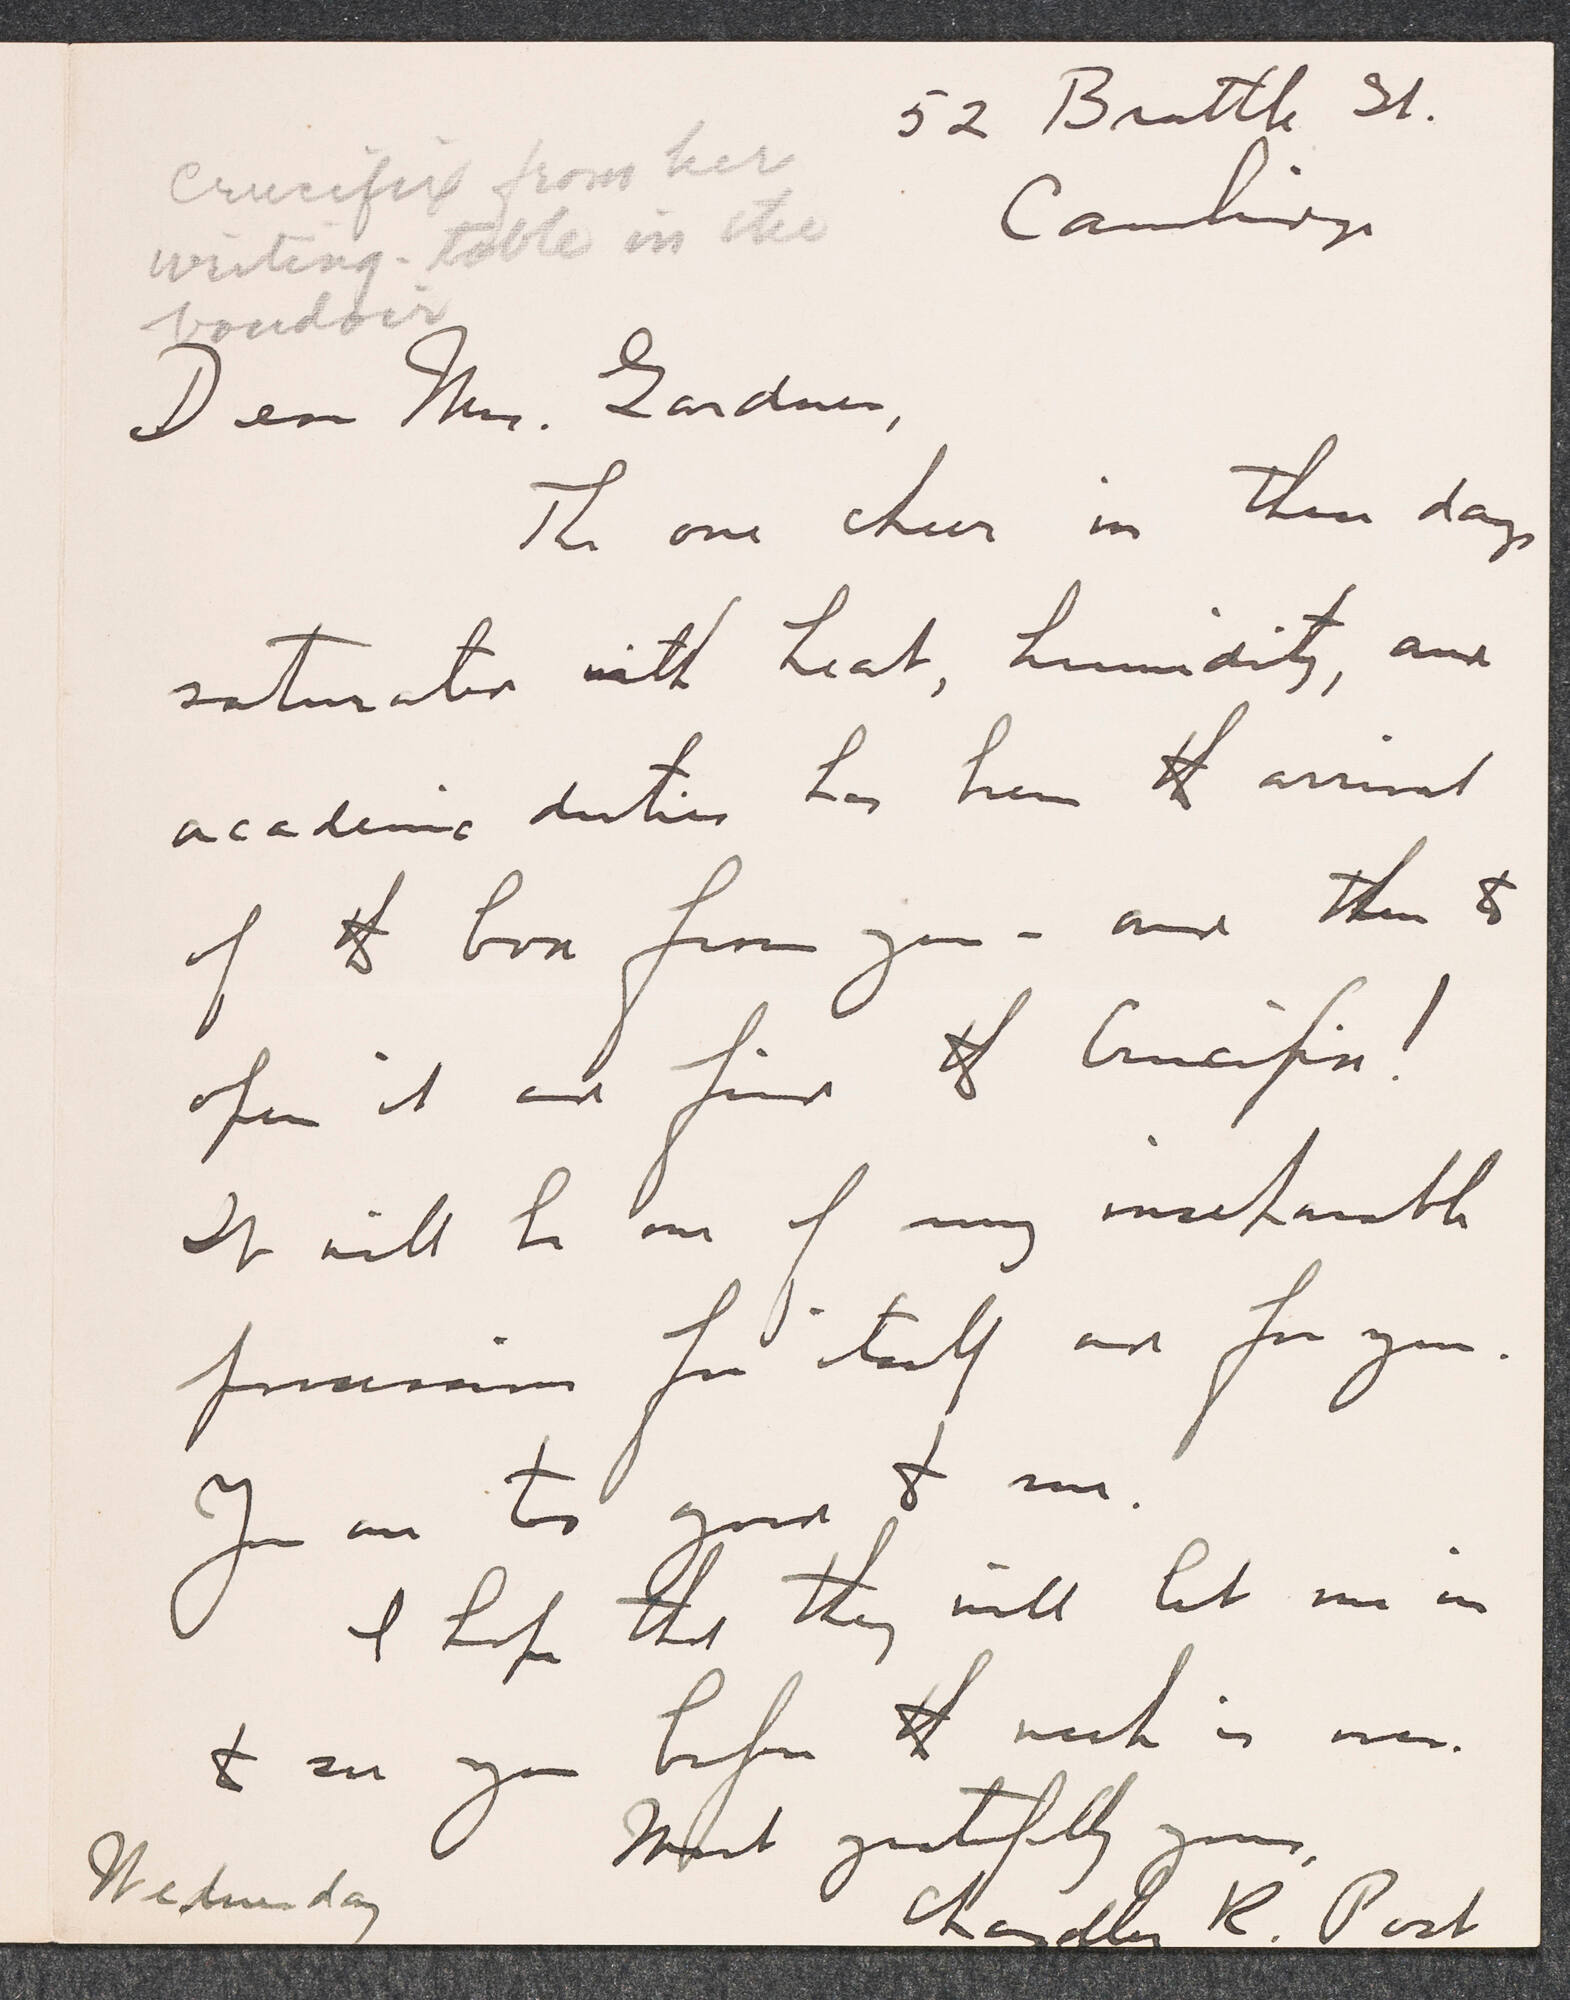 52 Brattle St.
Cambridge
Crucifix from her
writing-table in the
boudoir
Dear Mrs. Gardner,
The one cheer in these days
saturated with heat, humidity, and
academic duties has been the arrival
of the box from you - and then to
open it and find the Crucifix!
It will be one of my inseparable
possessions for itself and for you.
You are too good to me.
I hope that they will let me in
to see you before the week is over.
Most gratefully yours,
Chandler R. Post
Wednesday